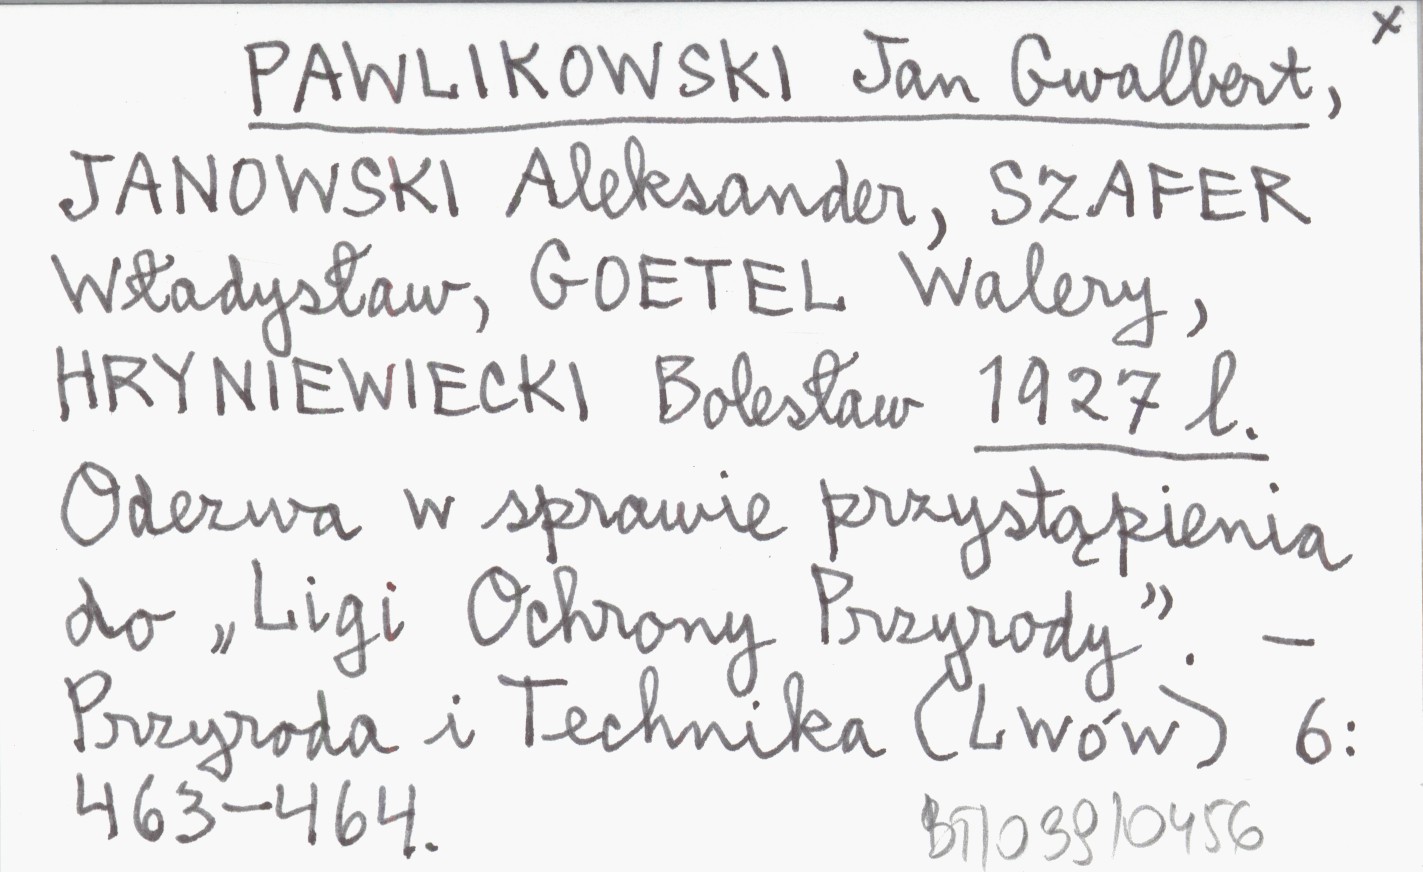 x
PAWLIKOWSKI Jan Gwalbert,
JANOWSKI Aleksander, SZAFER
Władysław, GOETEL Walery,
HRYNIEWIECKI Bolesław 1927 l.
Odezwa w sprawie przystąpienia
do „Ligi Ochrony Przyrody”. –
Przyroda i Technika (Lwów) 6:
463–464.
BT/039/0456